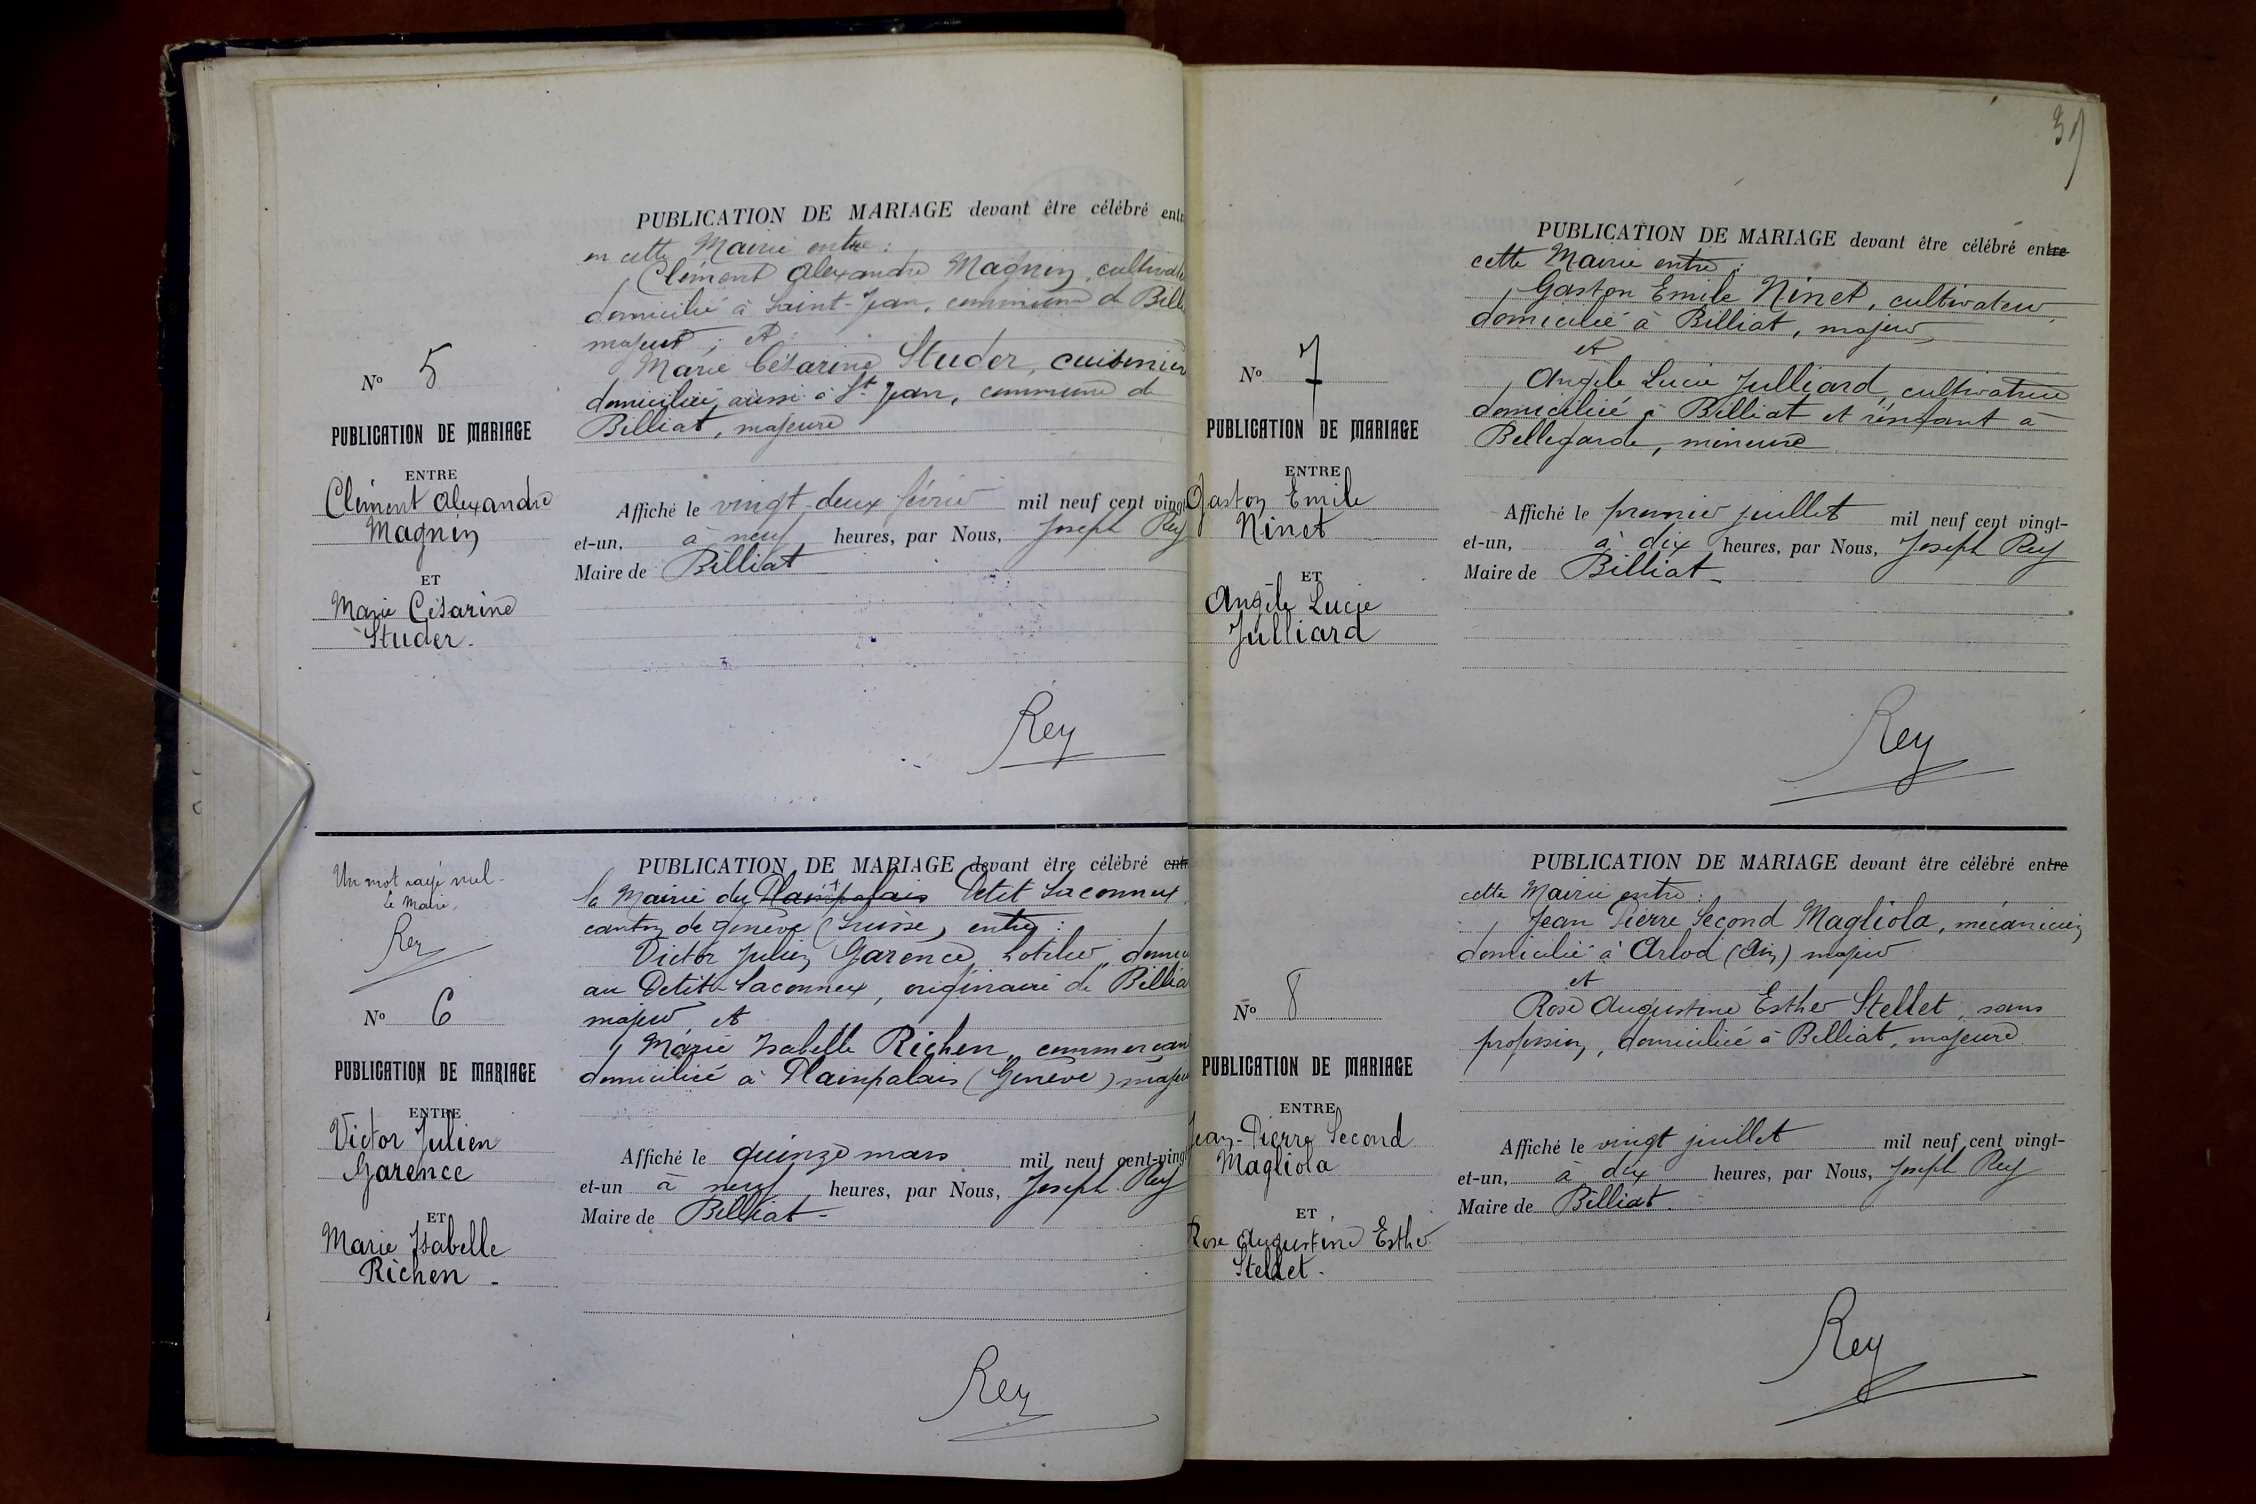 PUBLICATION DE MARIAGE devant être célébré entr
en cette Mairie entre :
Clément Alexandre Magnin, cultivate
domicilié à Saint-Jean, commune de Bill
majeur ; et
Marie Césarine Studer, cuisinièr
domiciliée aussi à St Jean, commune de
Billiat, majeure
No 5
PUBLICATION DE MARIAGE
ENTRE
Clément Alexandre
Magnin
ET
Marie Césarine
Studer.
Affiché le vingt-deux février mil neuf cent vingt
et-un, à neuf heures, par Nous, Joseph Rey
Maire de Billiat
Rey
Un mot rayé nul.
le Maire,
Rey
No 6
PUBLICATION DE MARIAGE
ENTRE
Victor Julien
Garence
ET
Marie Isabelle
Richen -
PUBLICATION DE MARIAGE devant être célébré entr
la Mairie du Plainpalais Petit Saconnex
canton de Genève (Suisse) entre :
Victor Julien Garence, hôtelier, domici
au Petit Saconnex, originaire de Billia
majeur, et
Marie Isabelle Richen, commerçan
domiciliée à Plainpalais (Genève) majeu
Affiché le quinze mars mil neuf cent-vingt
et-un à neuf heures, par Nous, Joseph Rey
Maire de Billiat -
Rey
37
PUBLICATION DE MARIAGE devant être célébré entre
cette Mairie entre :
Gaston Emile Ninet, cultivateur,
domicilié à Billiat, majeur,
et
Angèle Lucie Julliard, cultivatrice
domiciliée à Billiat et résidant à
Bellegarde, mineure
No 7
PUBLICATION DE MARIAGE
ENTRE
Gaston Emile
Ninet
ET
Angèle Lucie
Julliard
Affiché le premier juillet mil neuf cent vingt-
et-un, à dix heures, par Nous, Joseph Rey
Maire de Billiat -
Rey
PUBLICATION DE MARIAGE devant être célébré entre
cette Mairie entre :
Jean Pierre Second Magliola, mécanicien
domicilié à Arlod (Ain) majeur
et
Rose Augustine Esther Stellet, sans
profession, domiciliée à Billiat, majeure.
No 8
PUBLICATION DE MARIAGE
ENTRE
Jean-Pierre Second
Magliola
ET
Rose Augustine Esther
Stellet -
Affiché le vingt juillet mil neuf cent vingt-
et-un, à dix heures, par Nous, Joseph Rey
Maire de Billiat.
Rey